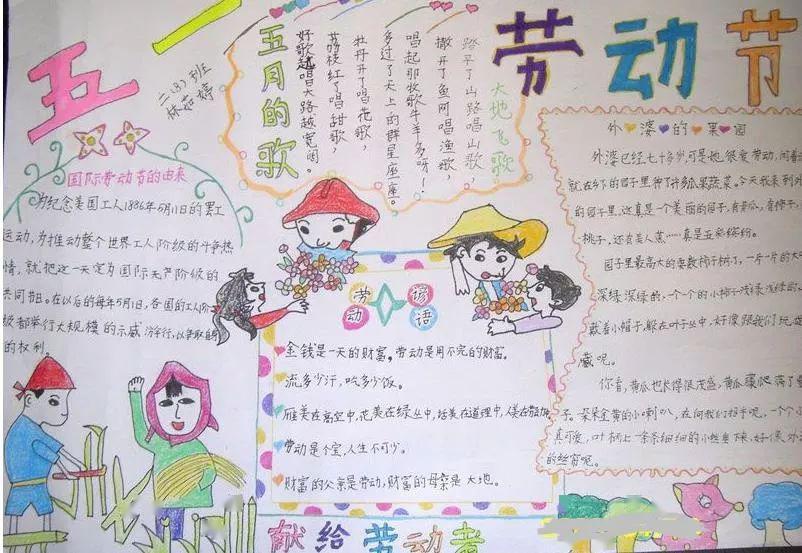 五一
劳动节
二(8)班
林茹婷
五月的歌
大地飞歌
踏平了山路唱山歌,
撒开了鱼网唱渔歌,
唱起那牧歌牛羊多呀!
多过了天上的群星座座。
牡丹开了唱花歌,
荔枝红了唱甜歌,
好歌越唱大路越宽阔。
国际劳动节的由来
为纪念美国工人1886年5月1日的罢工
运动,为推动整个世界工人阶级的斗争热
情,就把这一天定为国际无产阶级的
共同节日。在以后的每年5月1日,各国的工人阶
级都举行大规模的示威游行,以争取自
的权利。
劳动谚语
金钱是一天的财富。劳动是用不完的财富。
流多少汗,吃多少饭。
雁美在高空中,花美在绿丛中,话美在道理中,人美在
劳动是个宝,人生不可少。
财富的父亲是劳动,财富的母亲是大地。
外婆的果园
外婆已经七十多岁,可是她很爱劳动,
就在乡下的园子里种了许多瓜果蔬菜。今天我来到
的园子里,这真是一个美丽的园子,有黄瓜,有柿子,
桃子,还有美人蕉……真是五彩缤纷。
园子里最高大的要数柿子树了,一片一片的大
深绿深绿的,一个个的小柿子浅绿浅绿的
戴着小帽子,躲在叶子丛中,好像跟我们玩
藏呢。
你看,黄瓜也长得很茂盛,黄瓜藤爬满了
子。朵朵金黄的小喇叭,在向我们招手呢,一个个
真可爱,叶柄上一条条细细的小丝垂下来,好像
的丝窗呢。
献给劳动者